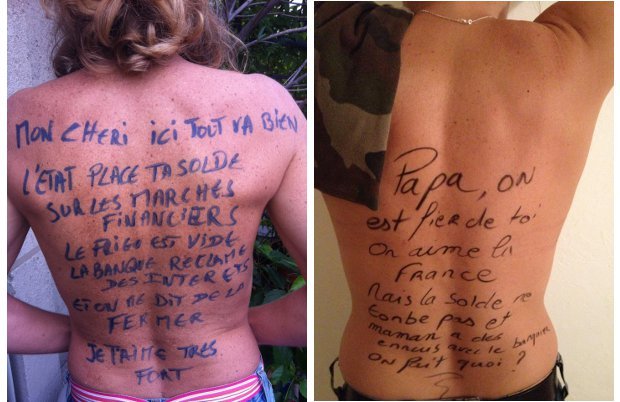 MON CHERI ICI TOUT VA BIEN
L'ÉTAT PLACE TA SOLDE
SUR LES MARCHÉS
FINANCIERS
LE FRIGO EST VIDE
LA BANQUE RECLAME
DES INTERETS
ET ON ME DIT DE LA
FERMER
JE T'AIME TRES
FORT
Papa, ON
est fier de toi
On aime la
FRANCE
Mais la solde ne
tombe pas et
maman a des
ennuis avec le banquier
On fait quoi ?